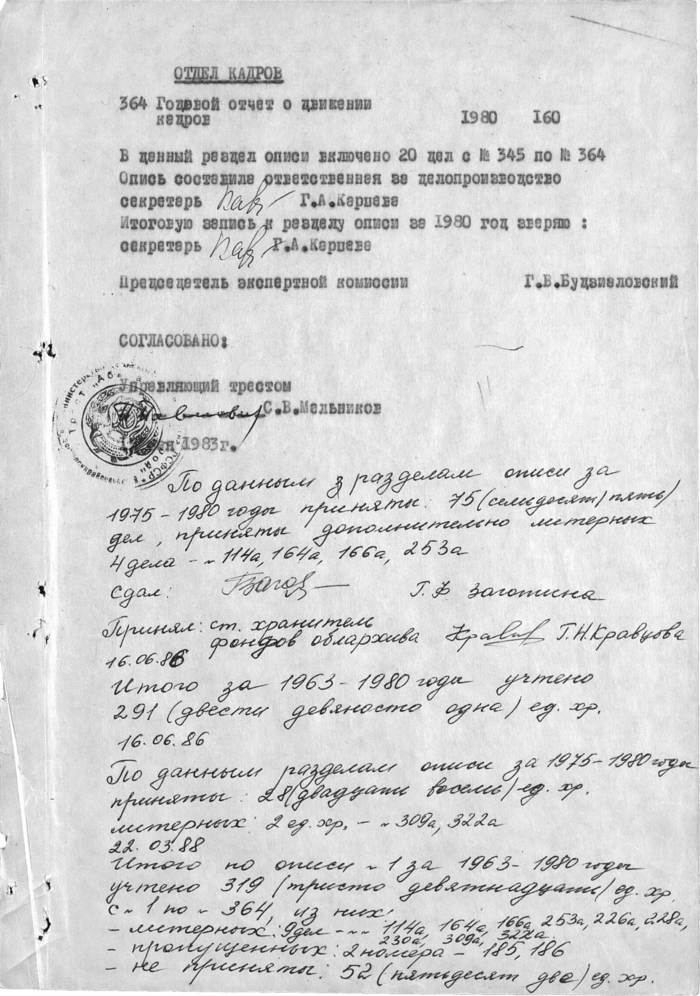 ОТДЕЛ КАДРОВ
364 Годовой отчет о движении
кадров 1980 160
В данный раздел описи включено 20 дел с № 345 по № 364
Опись составила ответственная за делопроизводство
секретарь Г.А.Карцева
Итоговую запись к разделу описи за 1980 год заверяю :
секретарь Г.А.Карцева
Председатель экспертной комиссии Г.В.Буцвиловский
СОГЛАСОВАНО:
Управляющий трестом
С.В.Мельников
1983г.
По данным 3 разделам описи за
1975-1980 годы приняты: 75 (семьдесят/пять/
дел, приняты дополнительно литерных
4 дела - № 114а, 164а, 166а, 253а
Сдал: Г.Ф Заготина
Принял: ст. хранитель
фондов облархива Г.Н.Кравцова
16.06.86
Итого за 1963-1980 годы учтено
291 (двести девяносто одна) ед. хр.
16.06.86
По данным разделам описи за 1975-1980 годы
приняты: 28 (двадцать восемь) ед. хр.
литерных: 2 ед. хр. - № 309а, 322а
22.03.88
Итого по описи № 1 за 1963-1980 годы
учтено 319 (тристо девятнадцать) ед. хр.
с № 1 по № 364, из них:
- литерных: 9 дел - №№ 114а, 164а, 166а, 253а, 226а, 228а,
230а, 309а, 322а
- пропущенных: 2 номера - 185, 186
- не приняты: 52 (пятьдесят две) ед. хр.